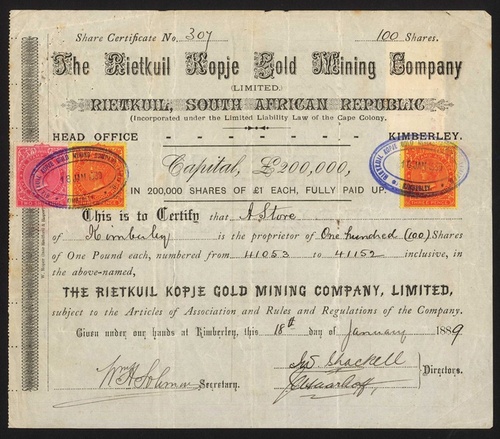 Share Certificate No. 307 100 Shares.
The Rietkuil Kopje Gold Mining Company
(LIMITED.)
RIETKUIL, SOUTH AFRICAN REPUBLIC
(Incorporated under the Limited Liability Law of the Cape Colony.
HEAD OFFICE - - - - - - KIMBERLEY.
Capital, £200,000,
IN 200,000 SHARES OF £1 EACH, FULLY PAID UP.
This is to Certify that A Store
of Kimberley is the proprietor of One hundred (100) Shares
of One Pound each, numbered from 41053 to 41152 inclusive, in
the above-named,
THE RIETKUIL KOPJE GOLD MINING COMPANY, LIMITED,
subject to the Articles of Association and Rules and Regulations of the Company.
Given under our hands at Kimberley, this 18th day of January 1889
Secretary.
Shackell
Directors.